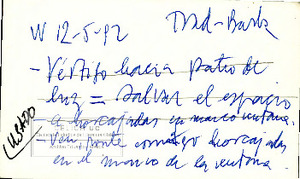 W 12-5-92
- Vértigo hacia patio de
luz = salvar el espacio
a horcajadas en marco ventana.
- Ven, ponte conmigo horcajadas
en el marco de la ventana
USADO